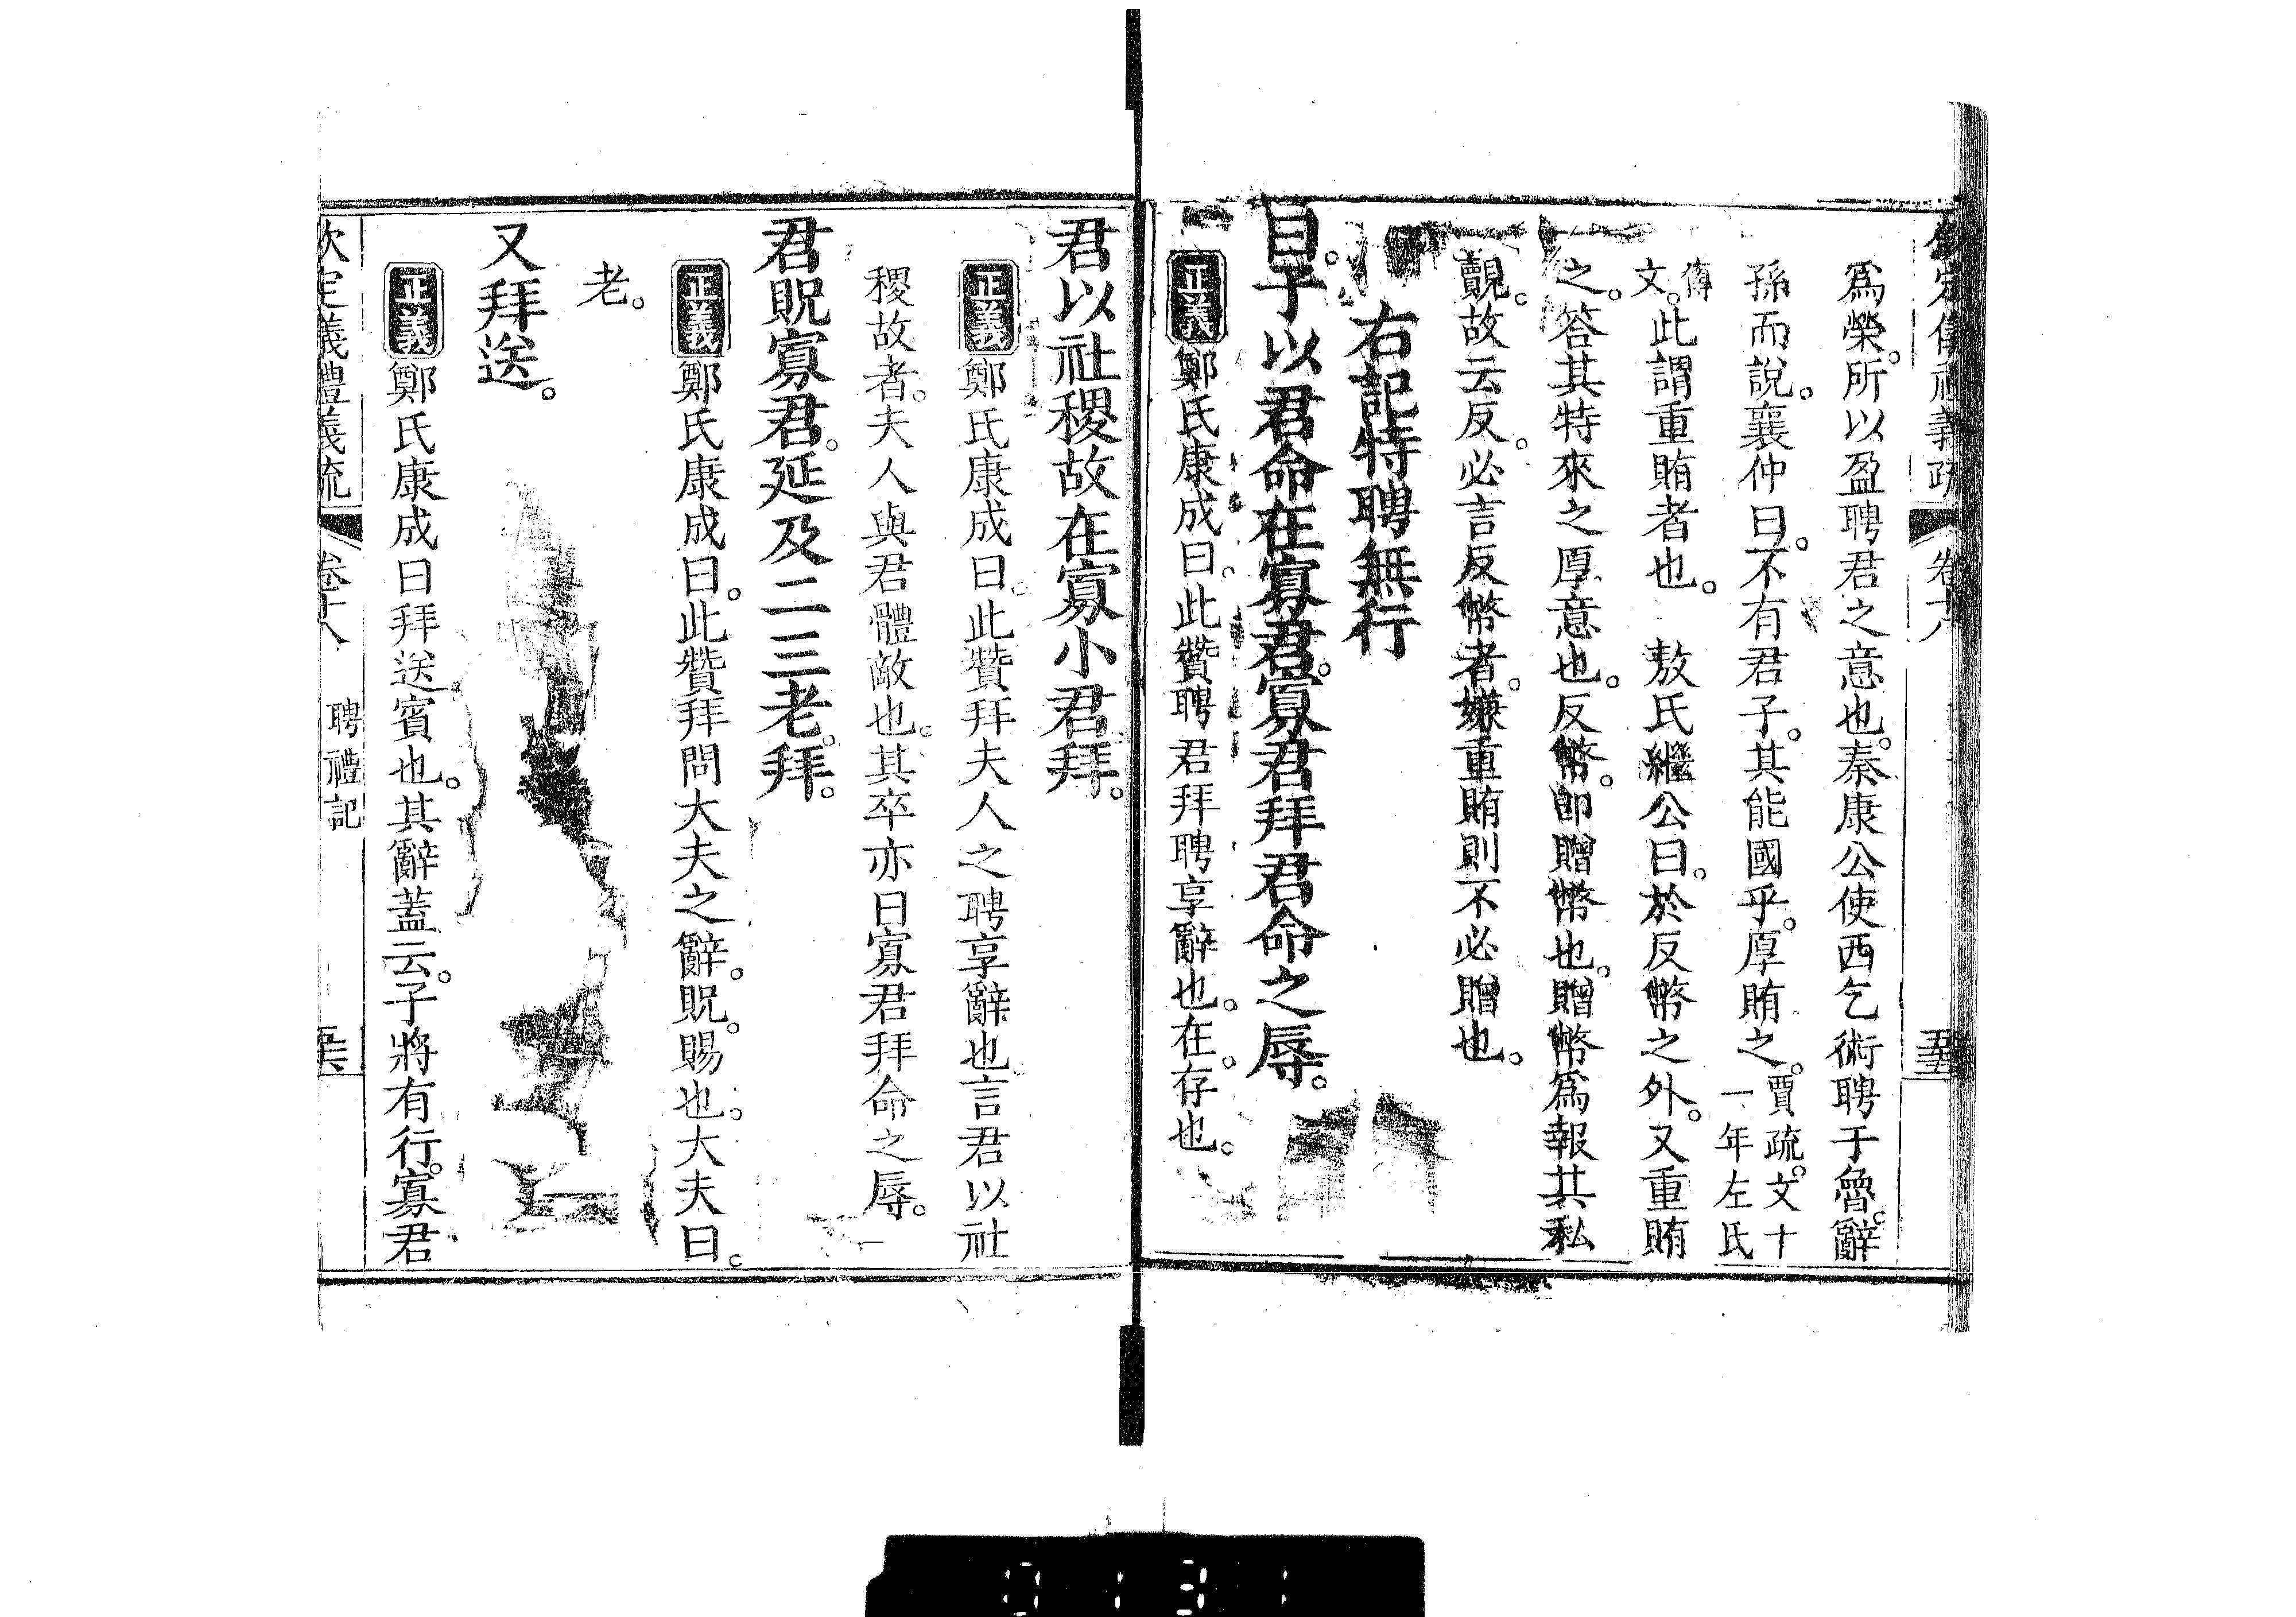 欽定儀禮義疏 卷十八
爲榮。所以盈聘君之意也。秦康公使西乞術聘于魯。辭
孫而說。襄仲曰。不有君子。其能國乎。厚賄之。賈疏。文十一年左氏
傳文。此謂重賄者也。 敖氏繼公曰。於反幣之外。又重賄
之。答其特來之厚意也。反幣。卽贈幣也。贈幣爲報其私
覿。故云反。必言反幣者。嫌重賄則不必贈也。
右記特聘無行
曰。子以君命在寡君。寡君拜君命之辱。
正義鄭氏康成曰。此贊聘君拜聘享辭也。在。存也。
君以社稷故在寡小君拜。
正義鄭氏康成曰。此贊拜夫人之聘享辭也。言君以社
稷故者。夫人與君體敵也。其卒亦曰寡君拜命之辱。
君貺寡君。延及二三老。拜。
正義鄭氏康成曰。此贊拜問大夫之辭。貺。賜也。大夫曰。
老。
又拜送。
正義鄭氏康成曰拜送賓也。其辭蓋云。子將有行。寡君
欽定義禮義疏 卷十八 聘禮記